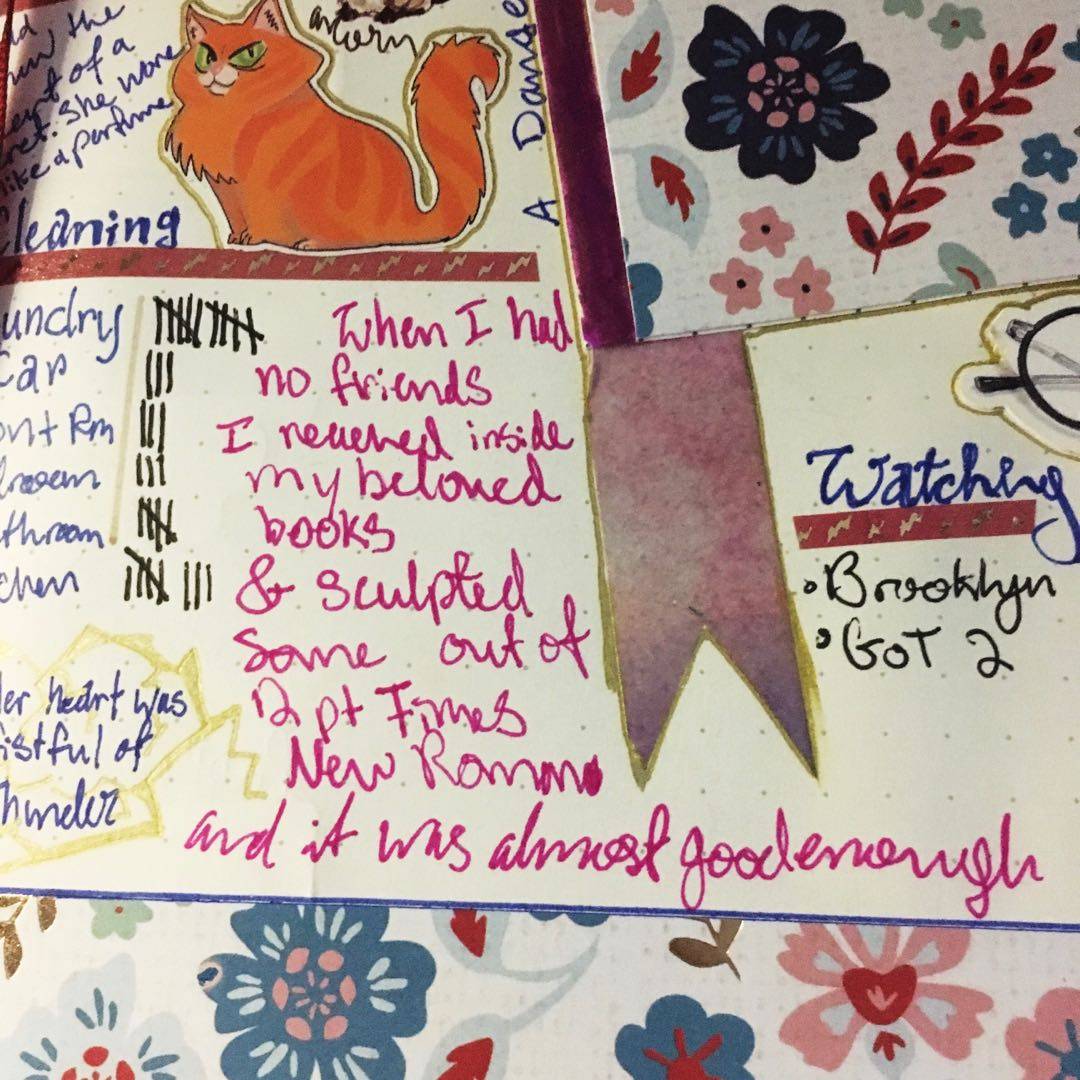 the
of a
she wore
like a perfume
acorn
A Damsel
Cleaning
Laundry
Car
Front Rm
Bathroom
Kitchen
When I had
no friends
I reached inside
my beloved
books
& sculpted
some out of
12 pt Times
New Roman
and it was almost goodenough
Her heart was
fistful of
Thunder
Watching
• Brooklyn
• GoT 2